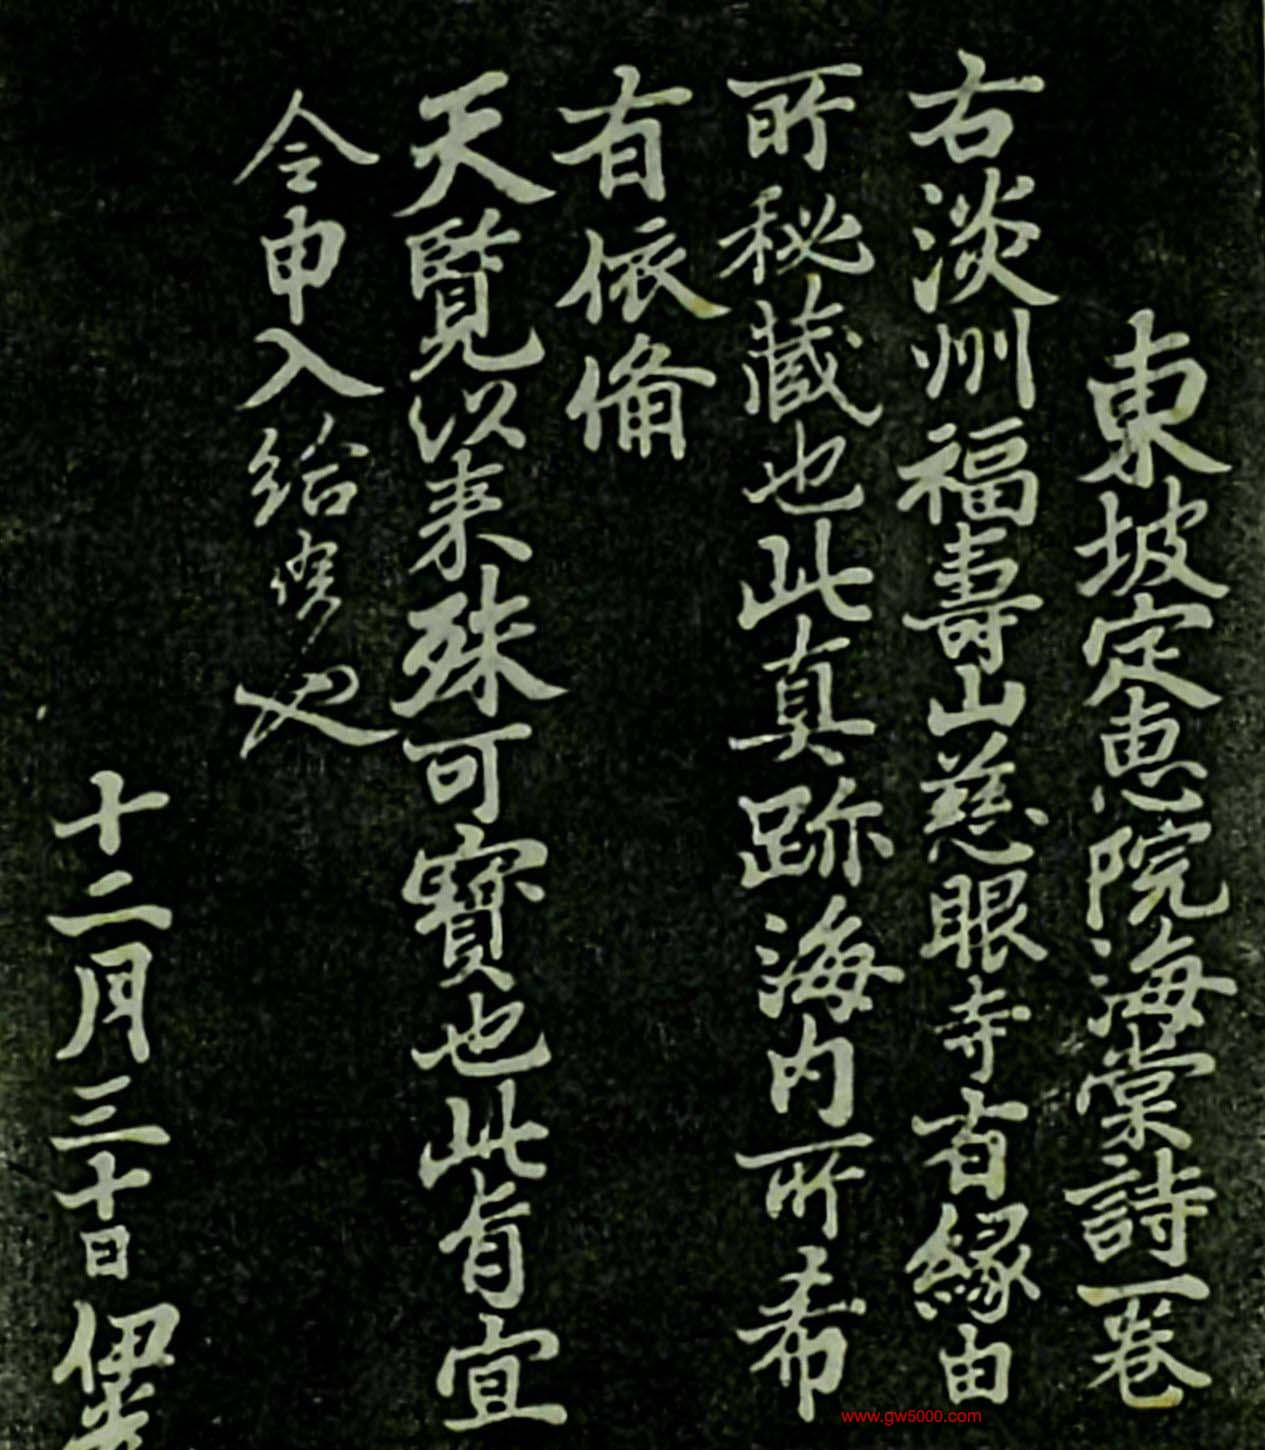 東坡定惠院海棠詩一卷
右淡州福壽山慈眼寺有緣由
所秘蔵也此真跡海内所希
有依備
天覧以来殊可寶也此旨宜
令申入給候也
十二月三十日 伊
www.gw5000.com